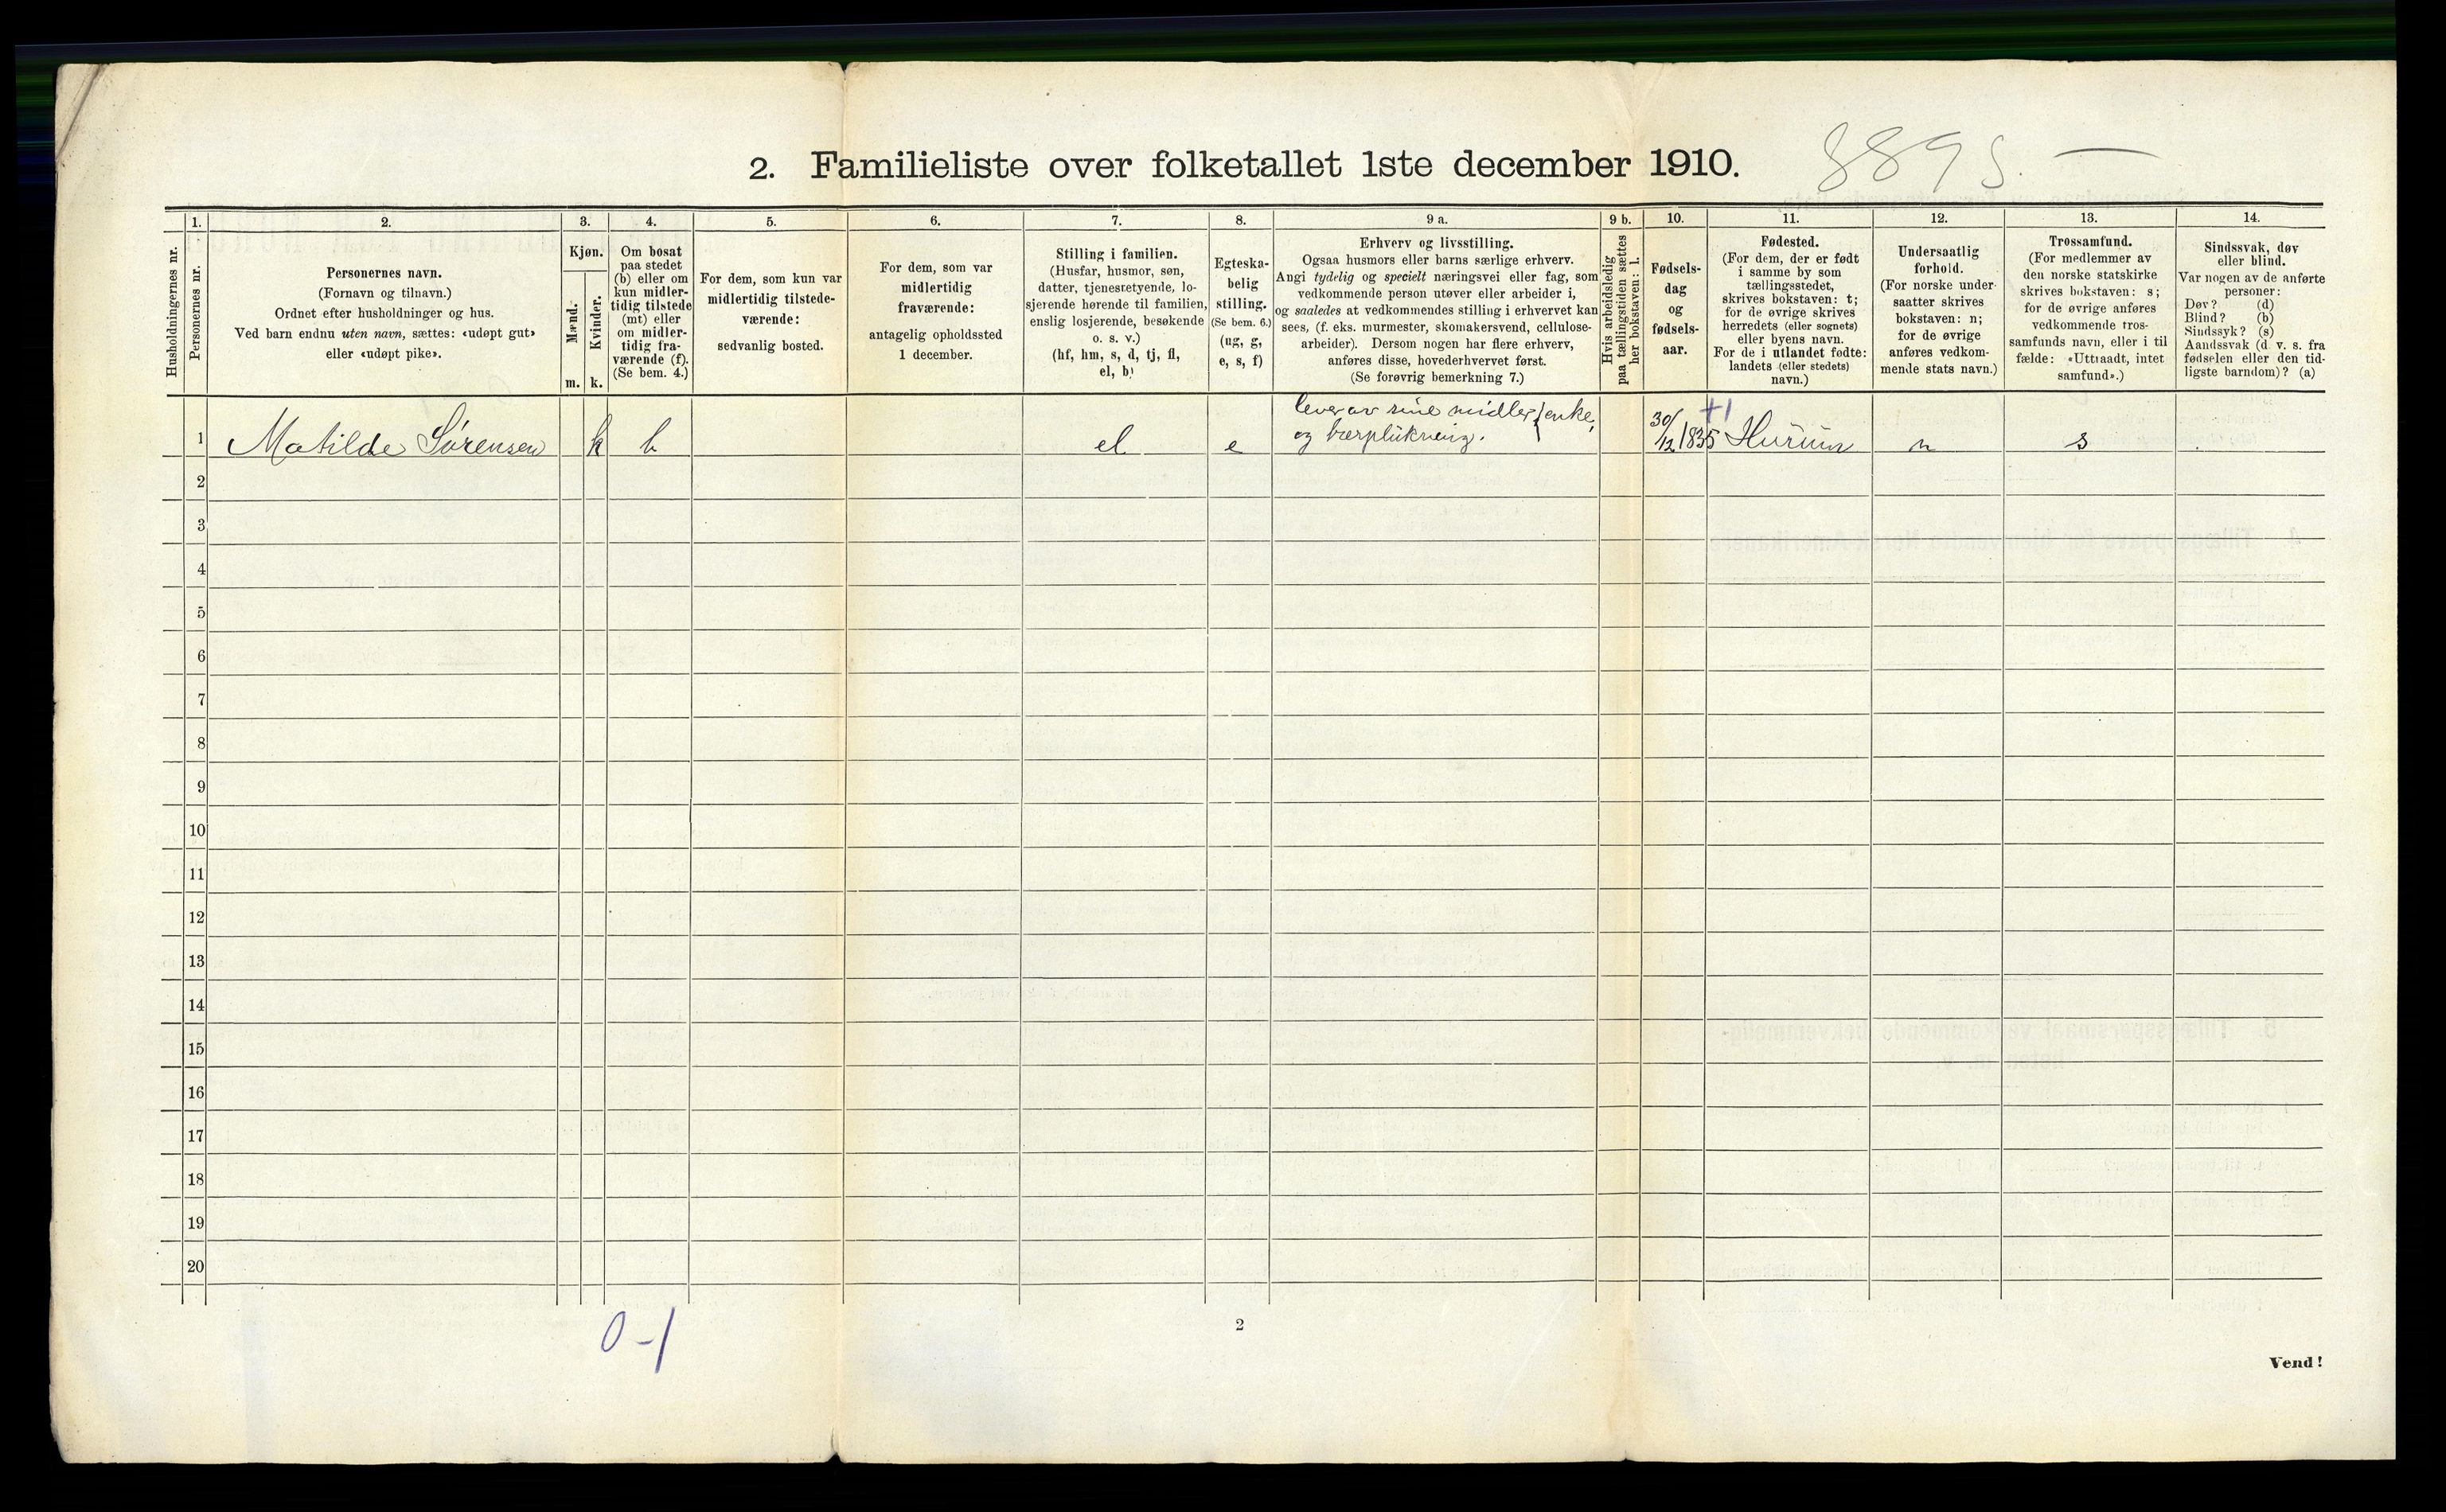 2. Familieliste over folketallet 1ste december 1910.
8895. —
Husholdningernes nr.
1.
Personernes nr.
2.
Personernes navn.
(Fornavn og tilnavn.)
Ordnet efter husholdninger og hus.
Ved barn endnu uten navn, sættes: «udøpt gut»
eller «udøpt pike».
3.
Kjøn.
Mænd.
m.
Kvinder.
k.
4.
Om bosat
paa stedet
(b) eller om
kun midler-
tidig tilstede
(mt) eller
om midler-
tidig fra-
værende (f).
(Se bem. 4.)
5.
For dem, som kun var
midlertidig tilstede-
værende:
sedvanlig bosted.
6.
For dem, som var
midlertidig
fraværende:
antagelig opholdssted
1 december.
7.
Stilling i familien.
(Husfar, husmor, søn,
datter, tjenestetyende, lo-
sjerende hørende til familien,
enslig losjerende, besøkende
o. s. v.)
(hf, hm, s, d, tj, fl,
el, b)
8.
Egteska-
belig
stilling.
(Se bem. 6.)
(ug, g,
e, s, f)
9 a.
Erhverv og livsstilling.
Ogsaa husmors eller barns særlige erhverv.
Angi tydelig og specielt næringsvei eller fag, som
vedkommende person utøver eller arbeider i,
og saaledes at vedkommendes stilling i erhvervet kan
sees, (f. eks. murmester, skomakersvend, cellulose-
arbeider). Dersom nogen har flere erhverv,
anføres disse, hovederhvervet først.
(Se forøvrig bemerkning 7.)
9 b.
Hvis arbeidsledig
paa tællingstiden sættes
her bokstaven: l.
10.
Fødsels-
dag
og
fødsels-
aar.
11.
Fødested.
(For dem, der er født
i samme by som
tællingsstedet,
skrives bokstaven: t;
for de øvrige skrives
herredets (eller sognets)
eller byens navn.
For de i utlandet fødte:
landets (eller stedets)
navn.)
12.
Undersaatlig
forhold.
(For norske under-
saatter skrives
bokstaven: n;
for de øvrige
anføres vedkom-
mende stats navn.)
13.
Trossamfund.
(For medlemmer av
den norske statskirke
skrives bokstaven: s;
for de øvrige anføres
vedkommende tros-
samfunds navn, eller i til
fælde: «Uttraadt, intet
samfund».)
14.
Sindssvak, døv
eller blind.
Var nogen av de anførte
personer:
Døv? (d)
Blind? (b)
Sindssyk? (s)
Aandssvak (d. v. s. fra
fødselen eller den tid-
ligste barndom)? (a)
1 Matilde Sørensen k b el e lever av sine midler } enke,
og bærplukning. 30/12 1835 +1 Hurum n s
2
3
4
5
6
7
8
9
10
11
12
13
14
15
16
17
18
19
20
0-1
2
Vend!